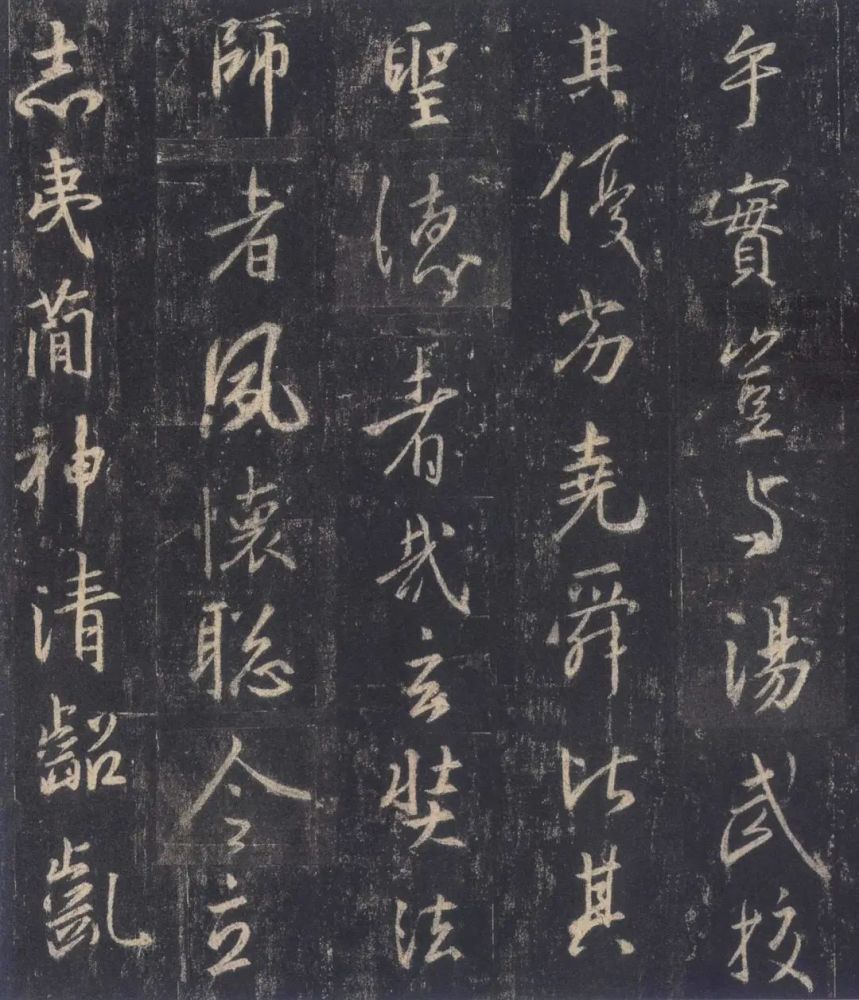 乎實豈与湯武挍
其優劣堯舜比其
聖德者哉玄奘法
師者夙懷聡令立
志夷簡神清齠齔